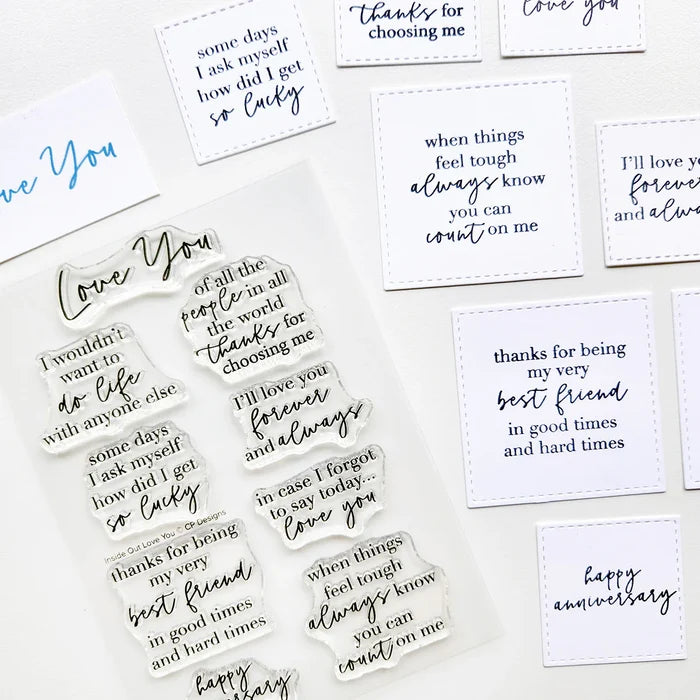 some days
I ask myself
how did I get
so lucky
thanks for
choosing me
love you
ve You
when things
feel tough
always know
you can
count on me
I'll love yo
forever
and alwa
thanks for being
my very
best friend
in good times
and hard times
happy
anniversary
Love You
of all the
people in all
the world
thanks for
choosing me
I wouldn't
want to
do life
with anyone else
I'll love you
forever
and always
some days
I ask myself
how did I get
so lucky
in case I forgot
to say today...
love you
Inside Out Love You © CP Designs
thanks for being
my very
best friend
in good times
and hard times
when things
feel tough
always know
you can
count on me
happy
rsary